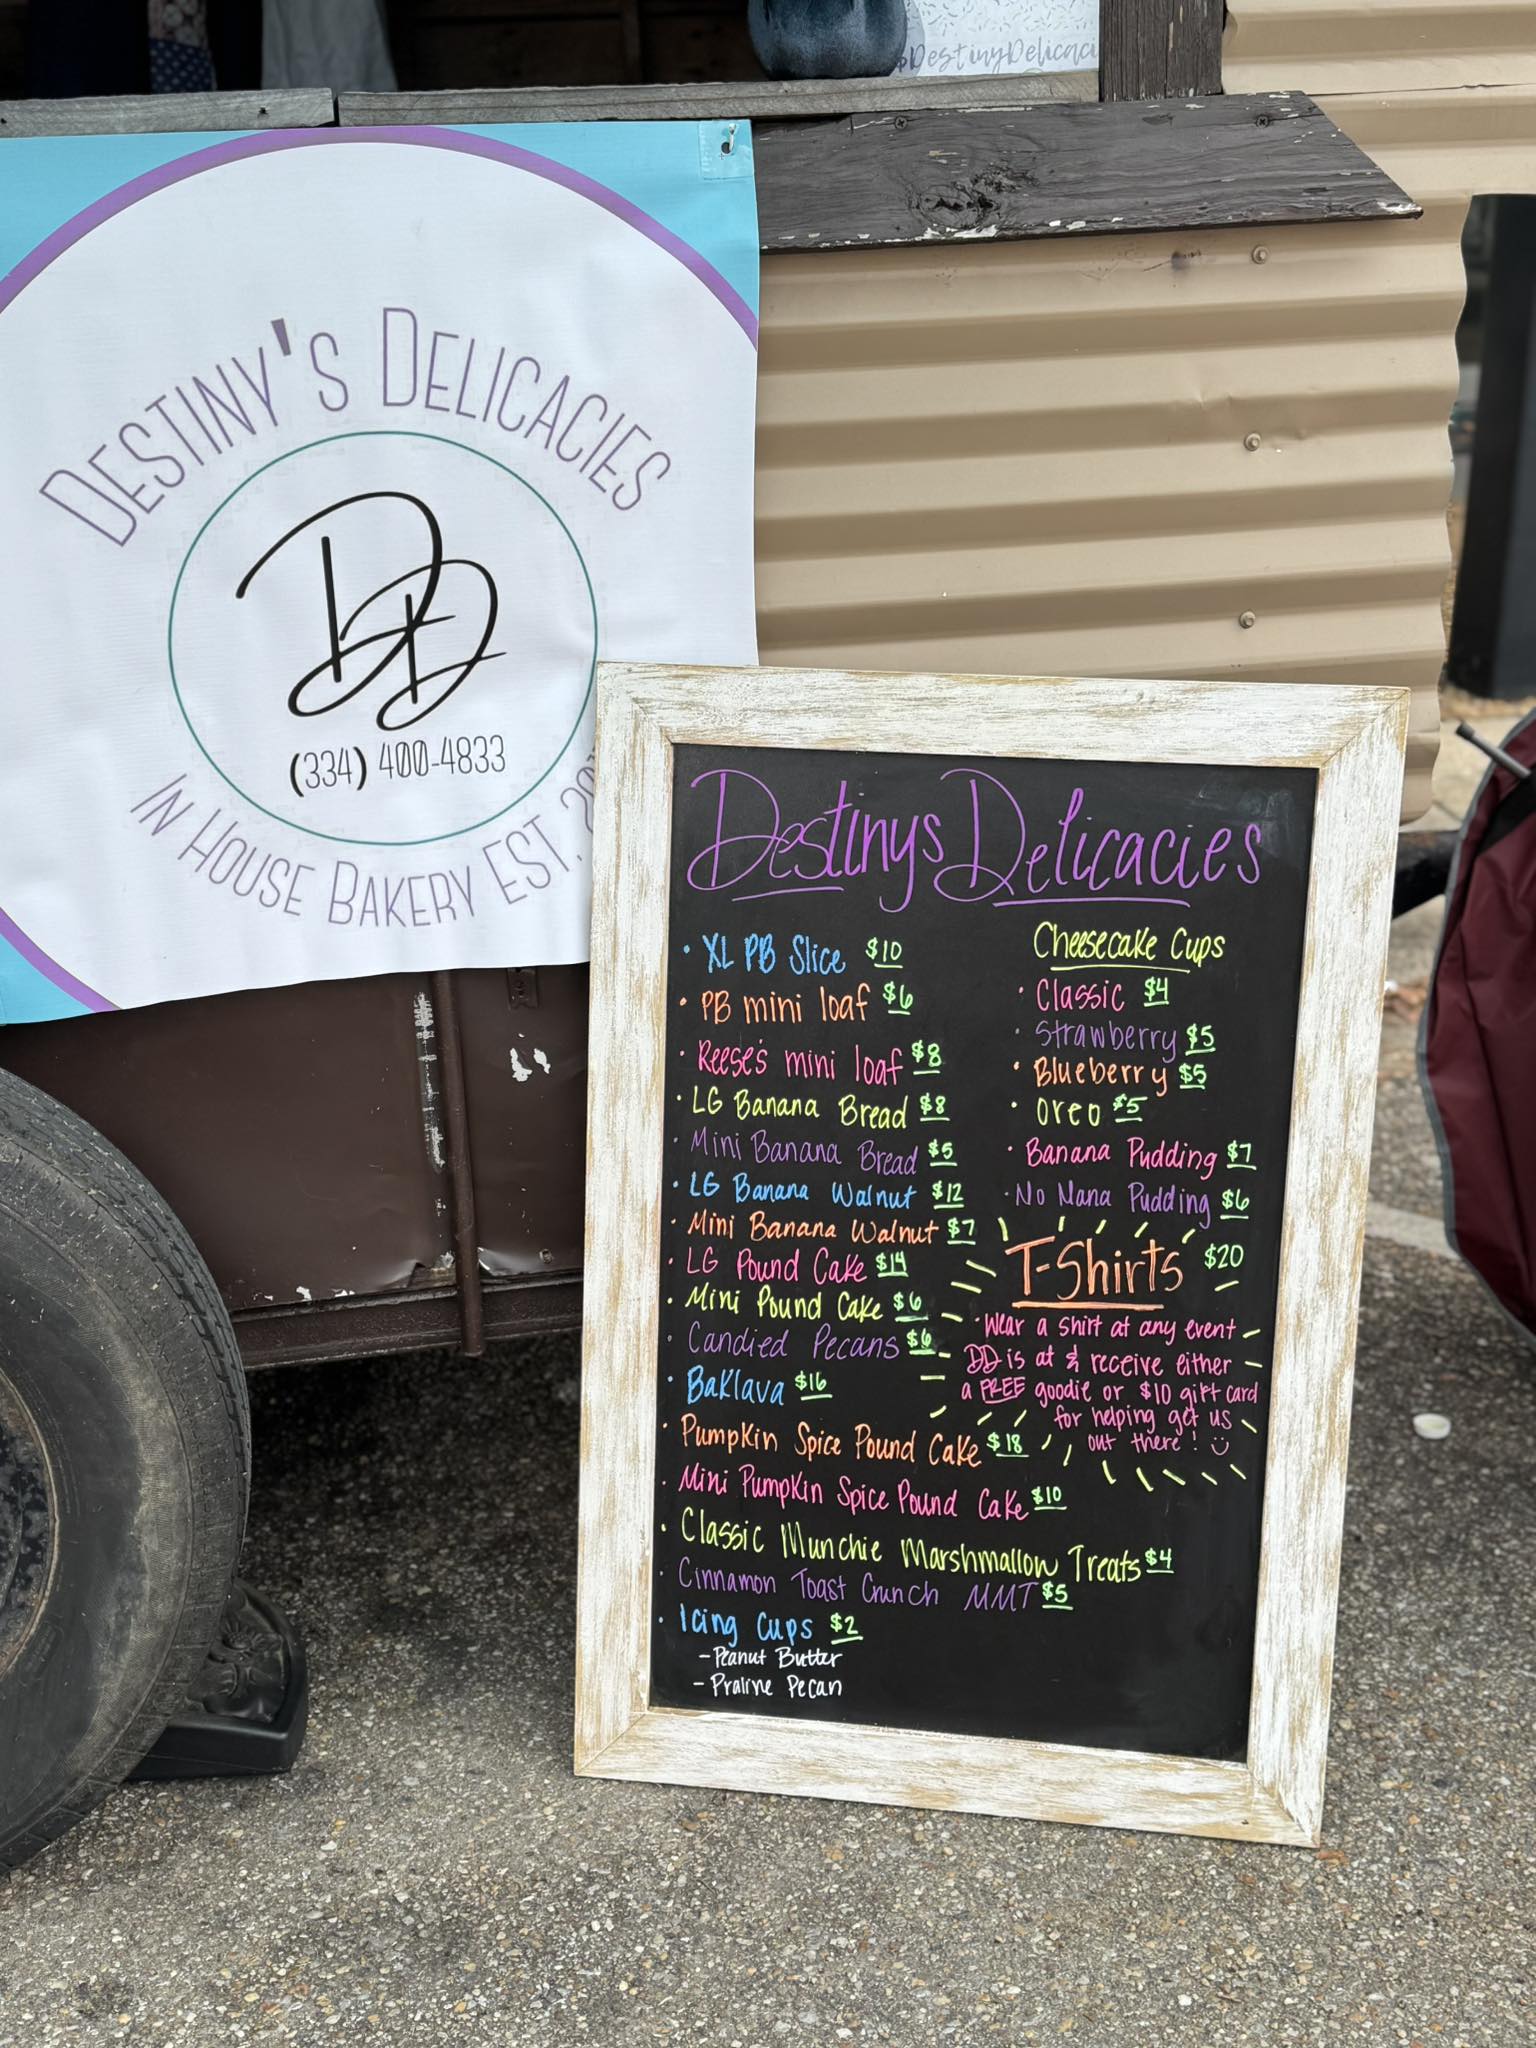 $DestinyDelicaci
DESTINY'S DELICACIES
DD
(334) 400-4833
IN HOUSE BAKERY EST.
Destinys Delicacies
• XL PB Slice $10
• PB mini loaf $6
• Reese's mini loaf $8
• LG Banana Bread $8
• Mini Banana Bread $5
• LG Banana Walnut $12
• Mini Banana Walnut $7
• LG Pound Cake $14
• Mini Pound Cake $6
• Candied Pecans $6
• Baklava $16
• Pumpkin Spice Pound Cake $18
• Mini Pumpkin Spice Pound Cake $10
• Classic Munchie Marshmallow Treats $4
• Cinnamon Toast Crunch MMT $5
• Icing Cups $2
- Peanut Butter
- Praline Pecan
Cheesecake Cups
• Classic $4
• Strawberry $5
• Blueberry $5
• Oreo $5
• Banana Pudding $7
• No Nana Pudding $6
T-Shirts $20
• Wear a shirt at any event
DD is at & receive either
a FREE goodie or $10 gift card
for helping get us
out there! :)